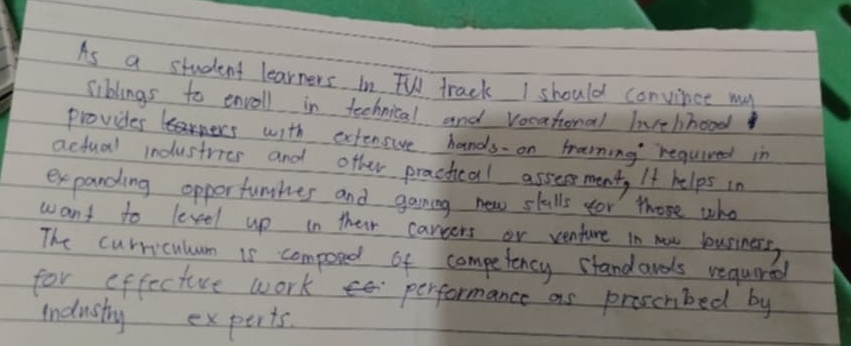 As a student learners in TVL track I should convince my
siblings to enroll in technical and Vocational livelihood
provides learners with extensive hands-on training required in
actual industries and other practical assessment, It helps in
expanding opportunities and gaining new skills for those who
want to level up in their careers or venture in new business,
The curriculum is composed of competency standards required
for effective work performance as prescribed by
industry experts.